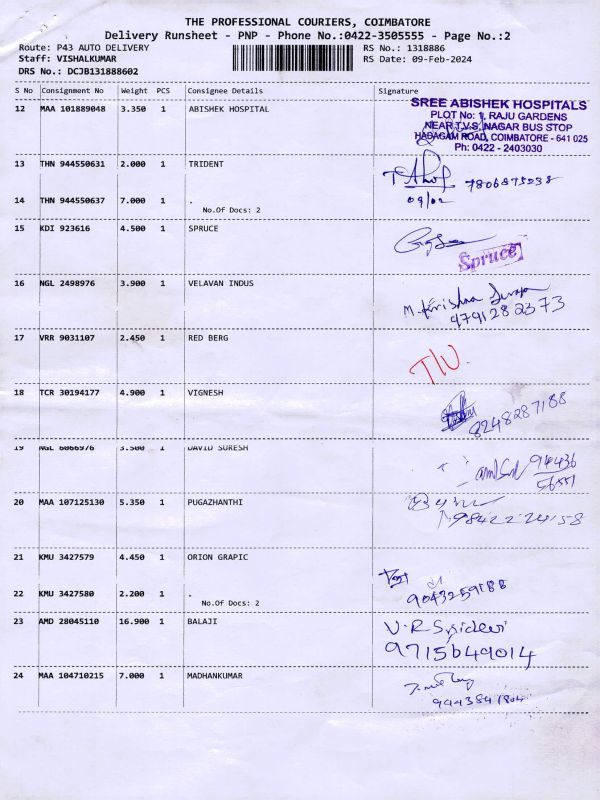 THE PROFESSIONAL COURIERS, COIMBATORE
Delivery Runsheet - PNP - Phone No.:0422-3505555 - Page No.:2
Route: P43 AUTO DELIVERY RS No.: 1318886
Staff: VISHALKUMAR RS Date: 09-Feb-2024
DRS No.: DCJB131888602
S No Consignment No Weight PCS Consignee Details Signature
12 MAA 101889048 3.350 1 ABISHEK HOSPITAL
SREE ABISHEK HOSPITALS
PLOT No: 1, RAJU GARDENS
NEAR T.V.S. NAGAR BUS STOP
ROAD, COIMBATORE - 641 025
Ph: 0422 - 2403030
13 THN 944550631 2.000 1 TRIDENT
7806875238
09/02
14 THN 944550637 7.000 1 .
No.Of Docs: 2
15 KDI 923616 4.500 1 SPRUCE
Spruce
16 NGL 2498976 3.900 1 VELAVAN INDUS
M. Krishna
9791282373
17 VRR 9031107 2.450 1 RED BERG
18 TCR 30194177 4.900 1 VIGNESH
8248287188
19 NGL 6066976 3.500 1 DAVID SURESH
94436
56551
20 MAA 107125130 5.350 1 PUGAZHANTHI
9842224158
21 KMU 3427579 4.450 1 ORION GRAPIC
22 KMU 3427580 2.200 1 .
9043259188
No.Of Docs: 2
23 AMD 28045110 16.900 1 BALAJI
V.R Sridevi
9715649014
24 MAA 104710215 7.000 1 MADHANKUMAR